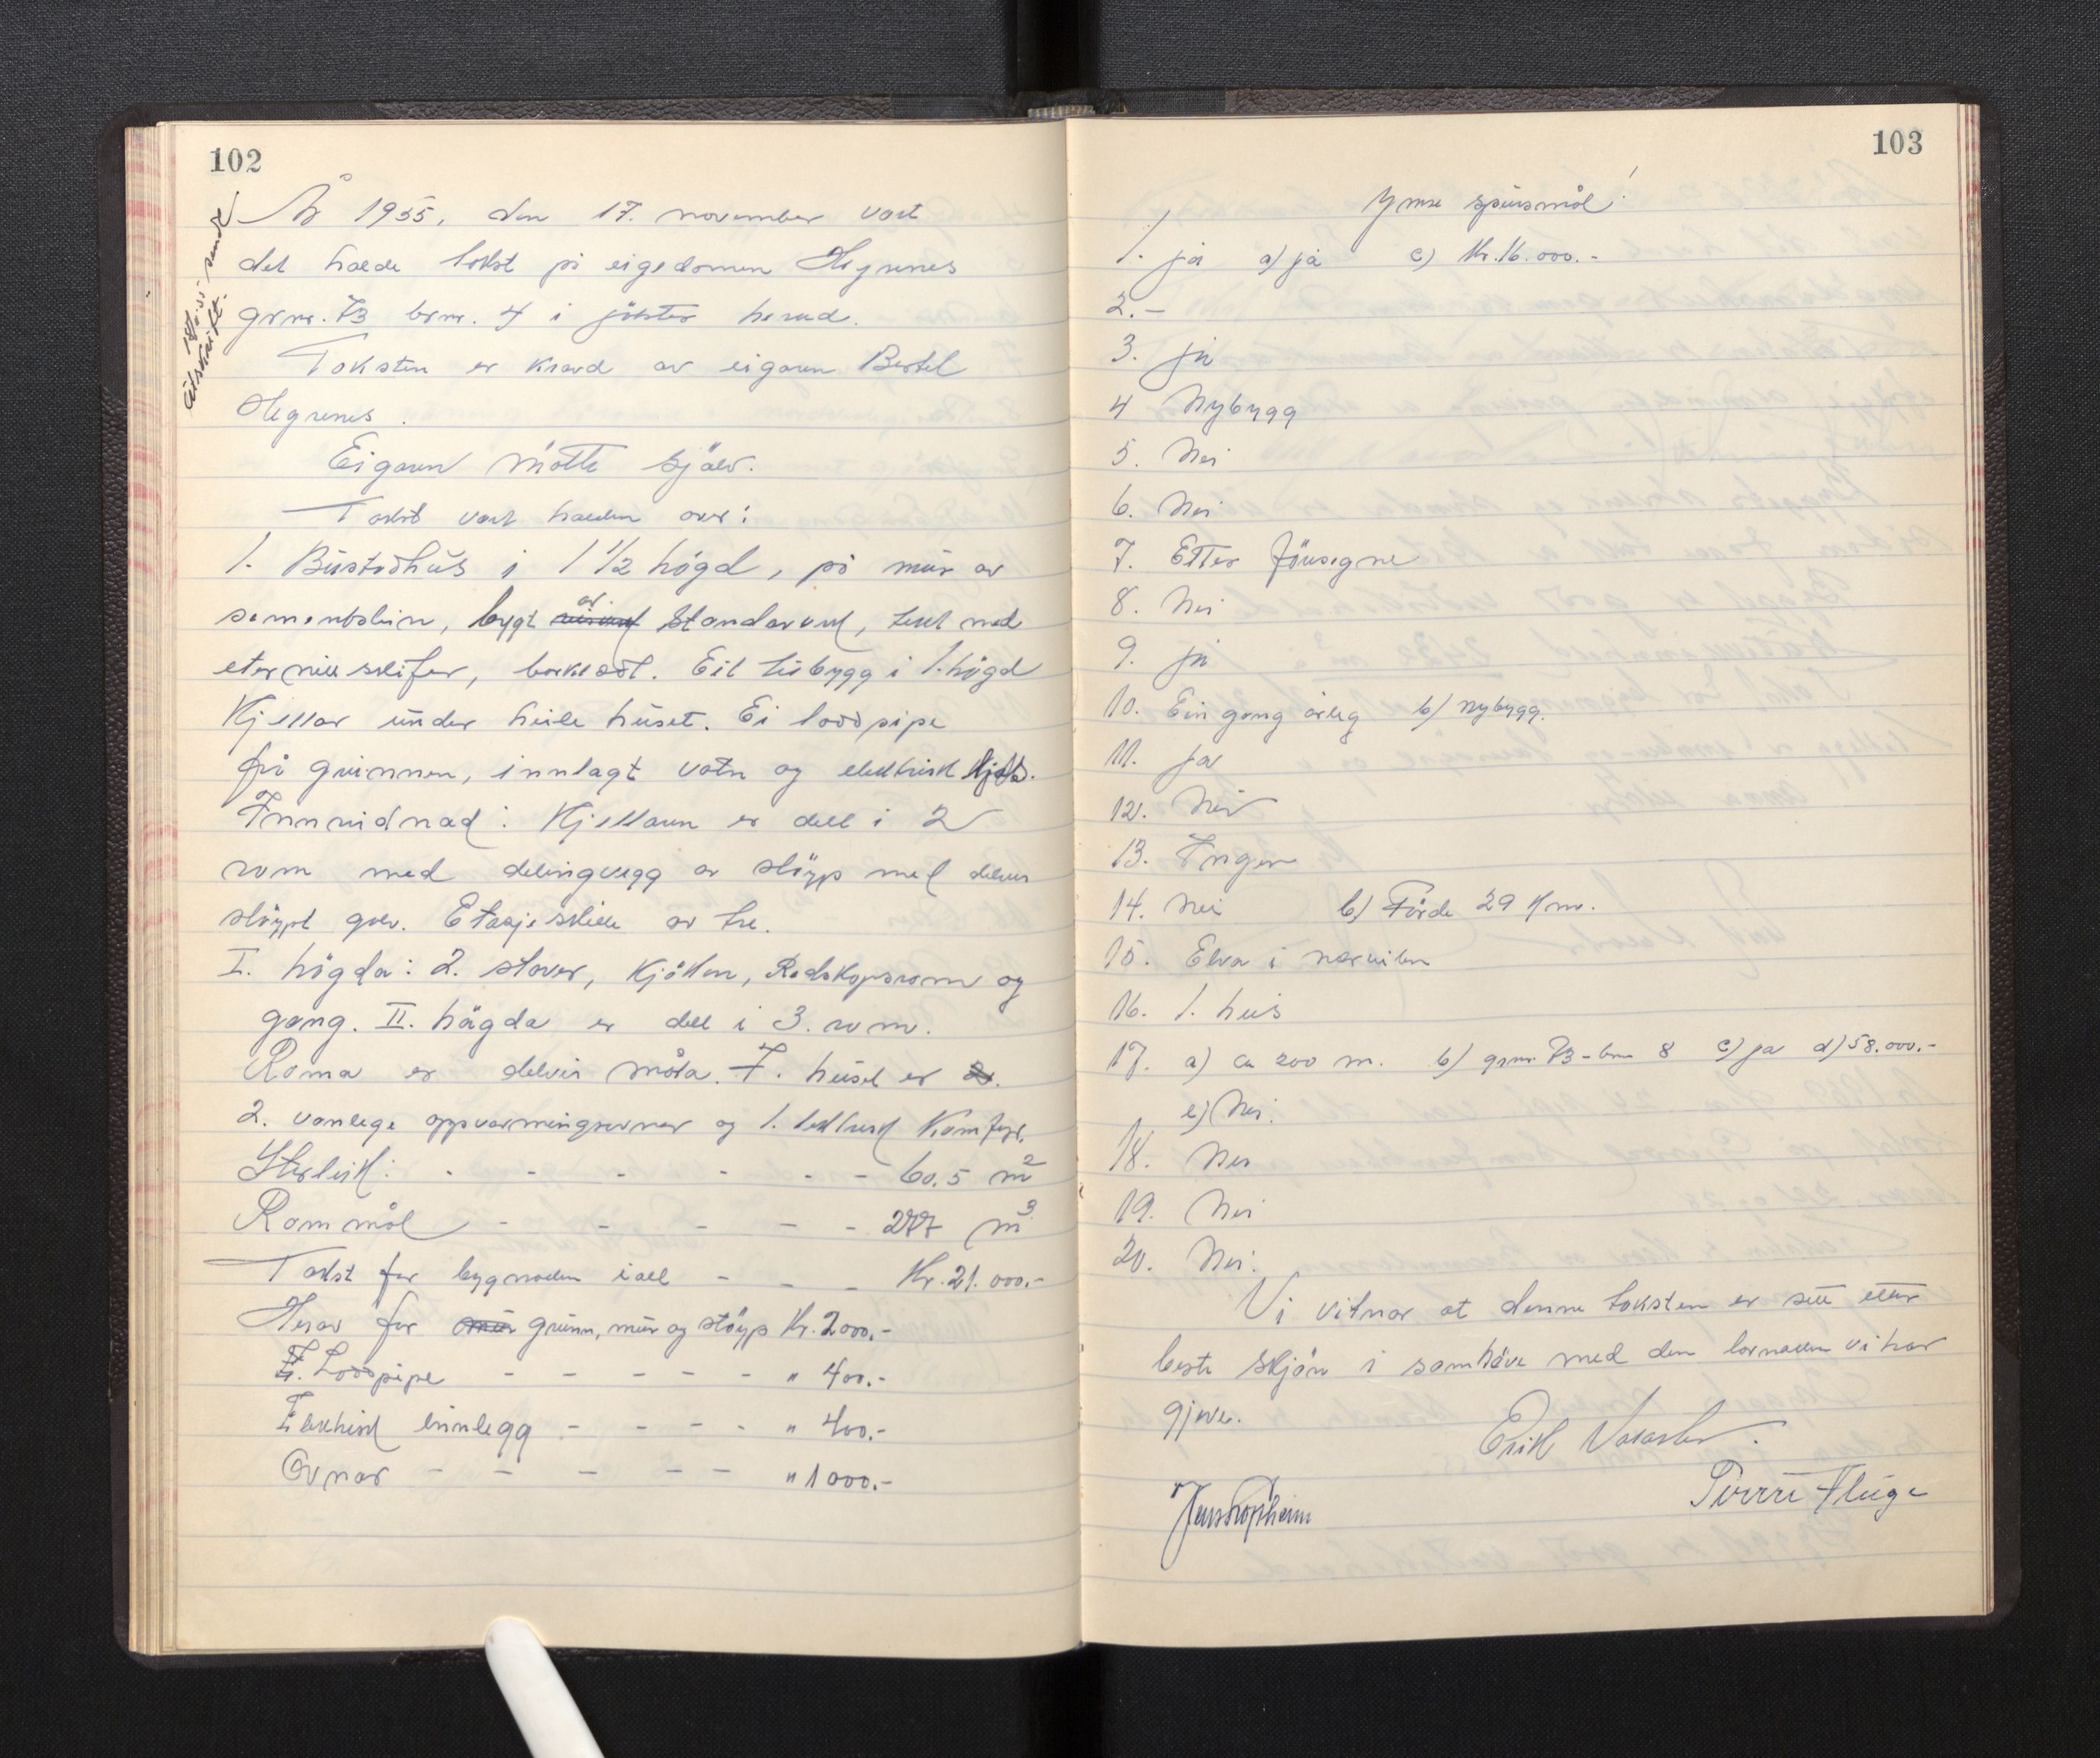 102
År 1955, den 17. november vart
det halde takst på eigedomen Hegrenes
grnr. 73 brnr. 4 i jölster herad.
Taksten er kravd av eigaren Bertel
Hegrenes.
Eigaren mötte sjölv.
Takst vart halden over:
1. Bustadhus i 1 1/2 högd, på mur av
sementstein, bygt av standarverk, tekt med
eternittskifer, bordkledt. Eit tilbygg i 1. högd
Kjellar under heile huset. Ei loddpipe
frå grunnen, innlagt vatn og elektrisk ljos.
Innreidnad: Kjellaren er delt i 2
rom med delingvegg av stöyp med delvis
stöypt golv. Etasjeskille av tre.
I. högda: 2. stover, kjöken, Redskapsrom og
gang. II. högda er delt i 3. rom.
Roma er delvis måla. I. huset er
2. vanlege oppvarmingsovnar og 1. elektrisk Komfyr.
Storleik: - - - - - - 60.5 m2
Rommål - - - - - 277 m3
Takst for bygnaden i alt - - - Kr. 21.000.-
Herav for grunn, mur og stöyp Kr. 2000.-
Loddpipe - - - - - " 400.-
Elektrisk innlegg - - - - " 400.-
Ovnar - - - - - " 1000.-
103
Ymse spursmål!
1. ja a) ja c) Kr. 16.000.-
2. -
3. ja
4 Nybygg
5. Nei
6. Nei
7. Etter föresegne
8. Nei
9. ja
10. Ein gong årleg b) nybygg.
11. ja
12. Nei
13. Ingen
14. Nei b) Förde 29 Km.
15. Elva i nærleiken
16. 1. hus
17. a) ca 200 m. b) grnr. 73 - brn 8 c) ja d) 58.000.-
e) Nei.
18. Nei
19. Nei
20. Nei.
Vi vitnar at denne taksten er sett etter
beste skjön i samhöve med den lovnaden vi har
gjeve.
Erik
Fluge